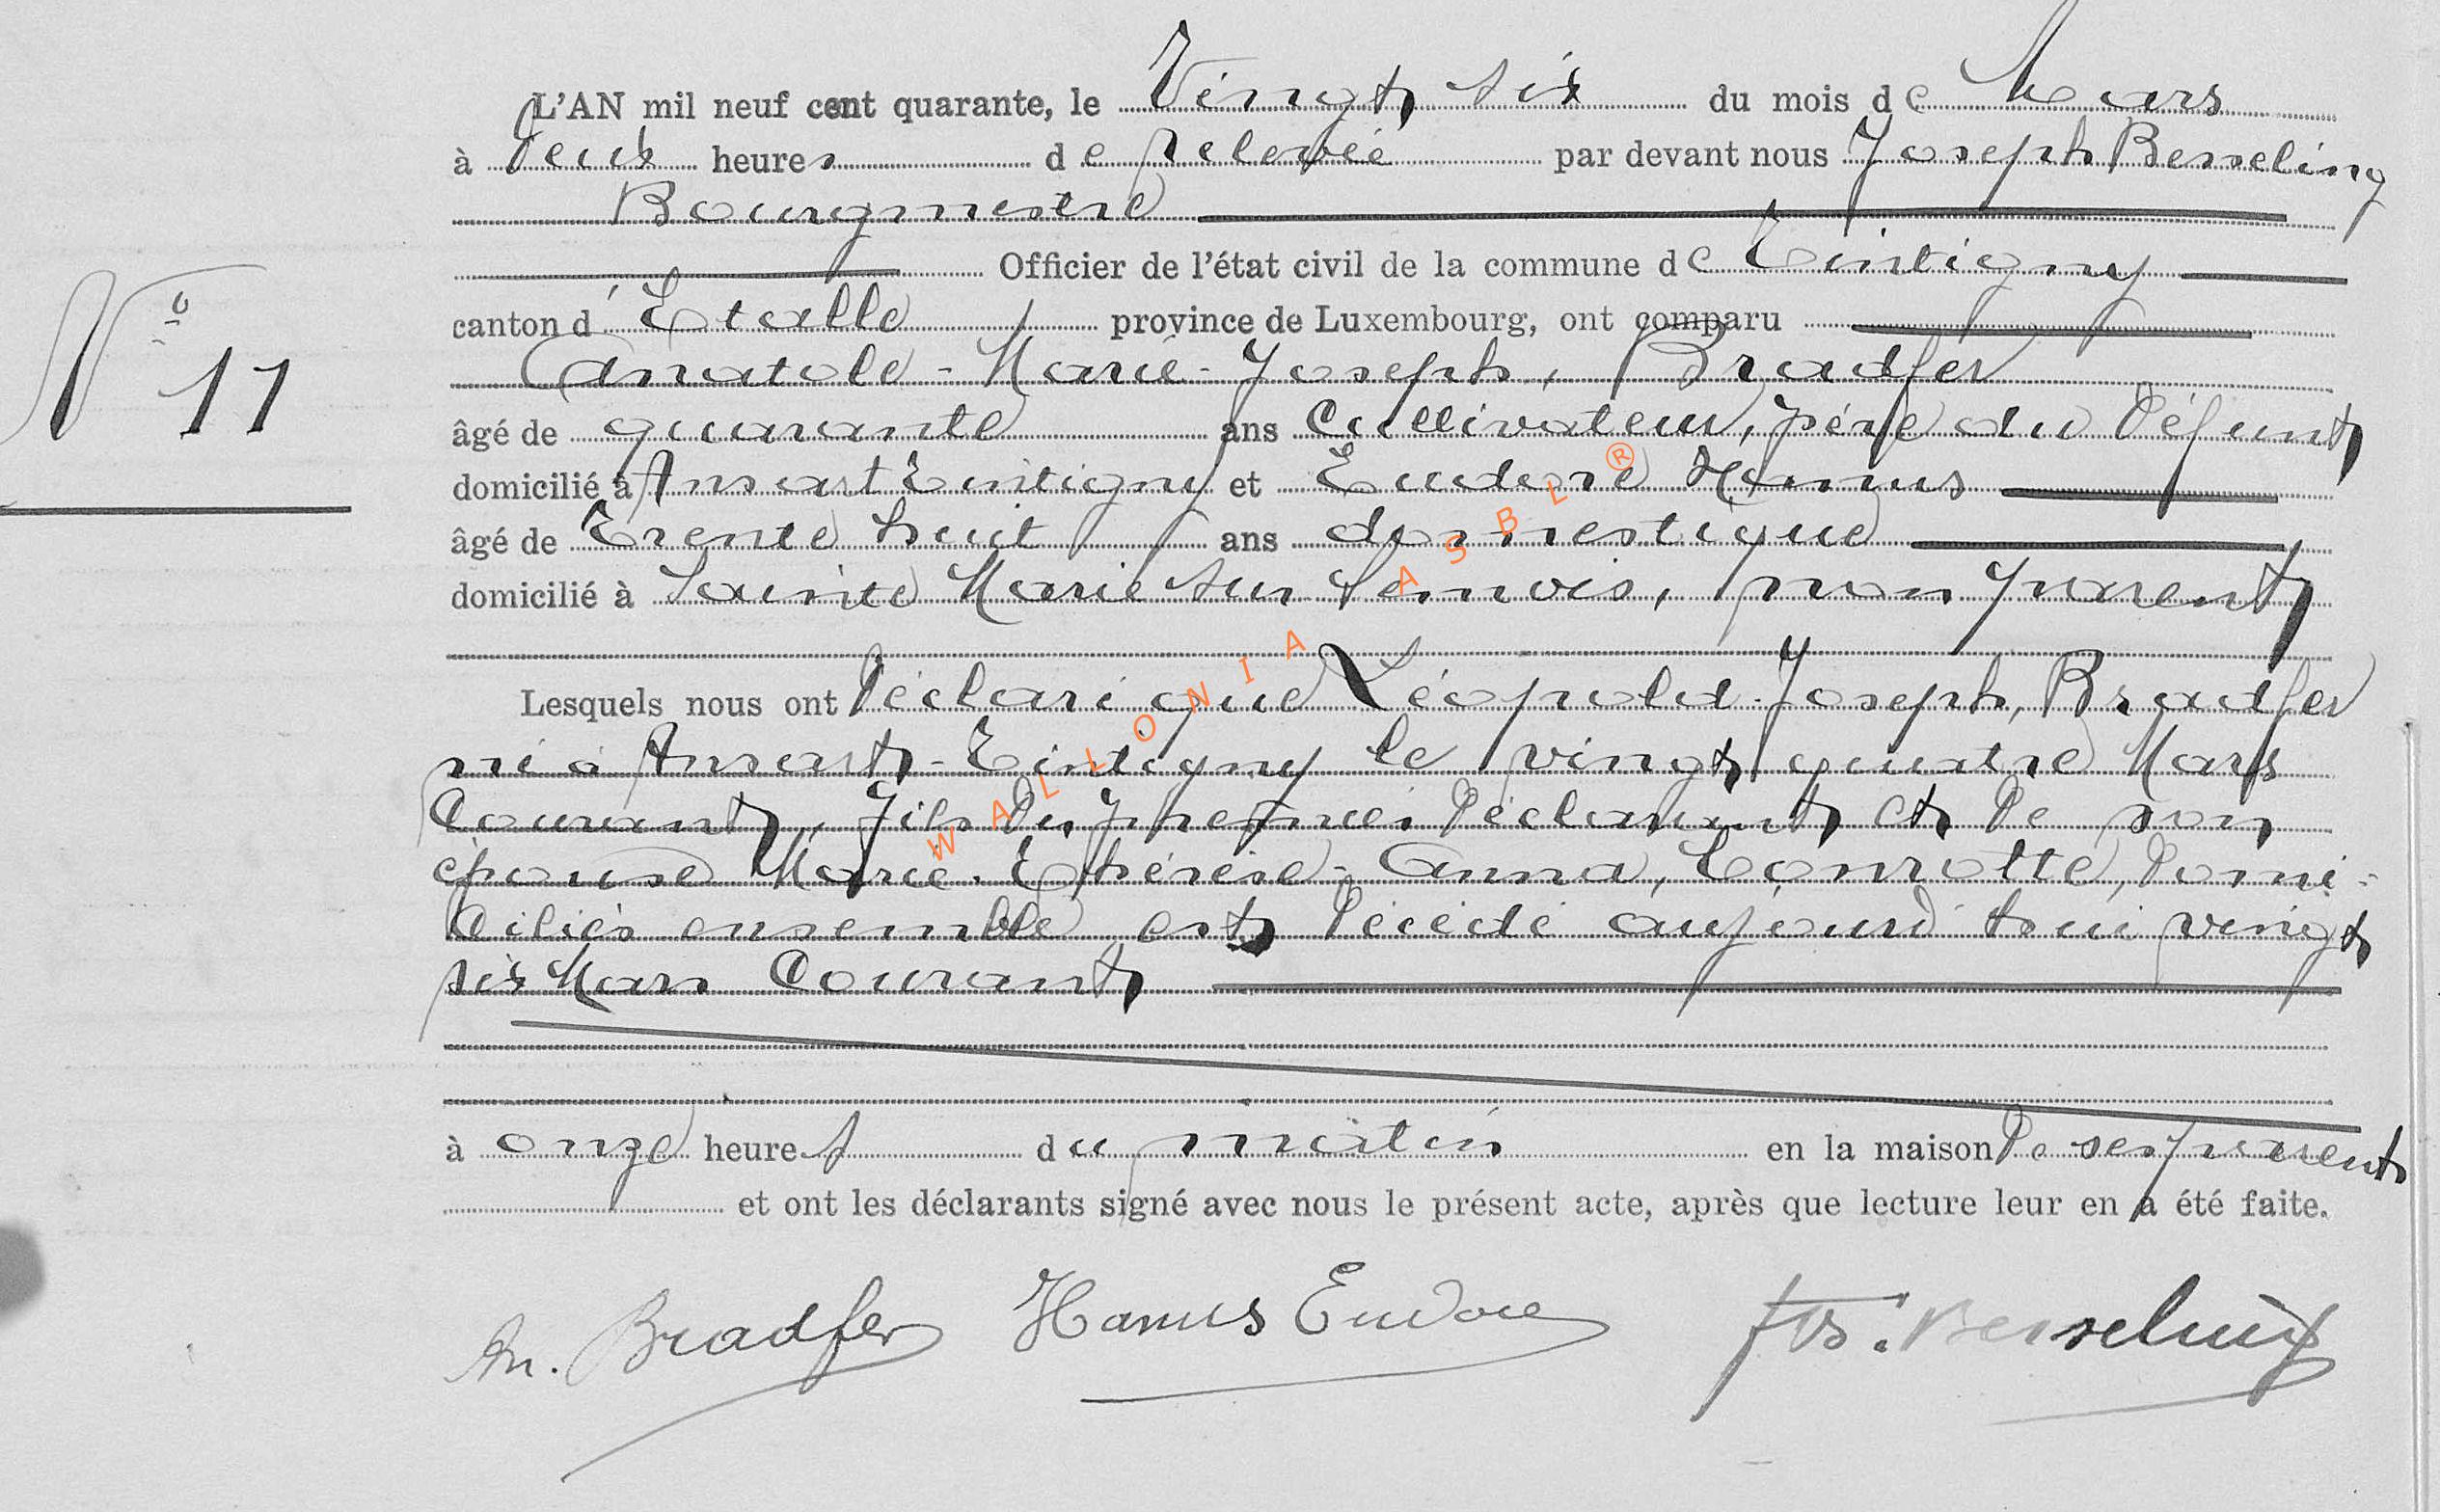 L'AN mil neuf cent quarante, le Vingt six du mois de Mars
à deux heures de relevée par devant nous Joseph Besseling
Bourgmestre
Officier de l'état civil de la commune de Tintigny
N° 11
canton d'Etalle province de Luxembourg, ont comparu
Anatole-Marie-Joseph, Bradfer
âgé de quarante ans Cultivateur, père du défunt
domicilié à Ansart Tintigny et Eudore Hanus
âgé de Trente huit ans domestique
domicilié à Sainte Marie sur Semois, non parent
Lesquels nous ont déclaré que Léopold-Joseph, Bradfer
né à Ansart-Tintigny le vingt quatre Mars
Courant, fils du premier déclarant et de son
épouse Marie-Thérèse-Anna, Conrotte, domi-
ciliés ensemble est décédé aujourd'hui vingt
six Mars Courant
à onze heures du matin en la maison de ses parents
et ont les déclarants signé avec nous le présent acte, après que lecture leur en a été faite.
An. Bradfer Hanus Eudore Jos. Besseling
WALLONIA ASBL ®